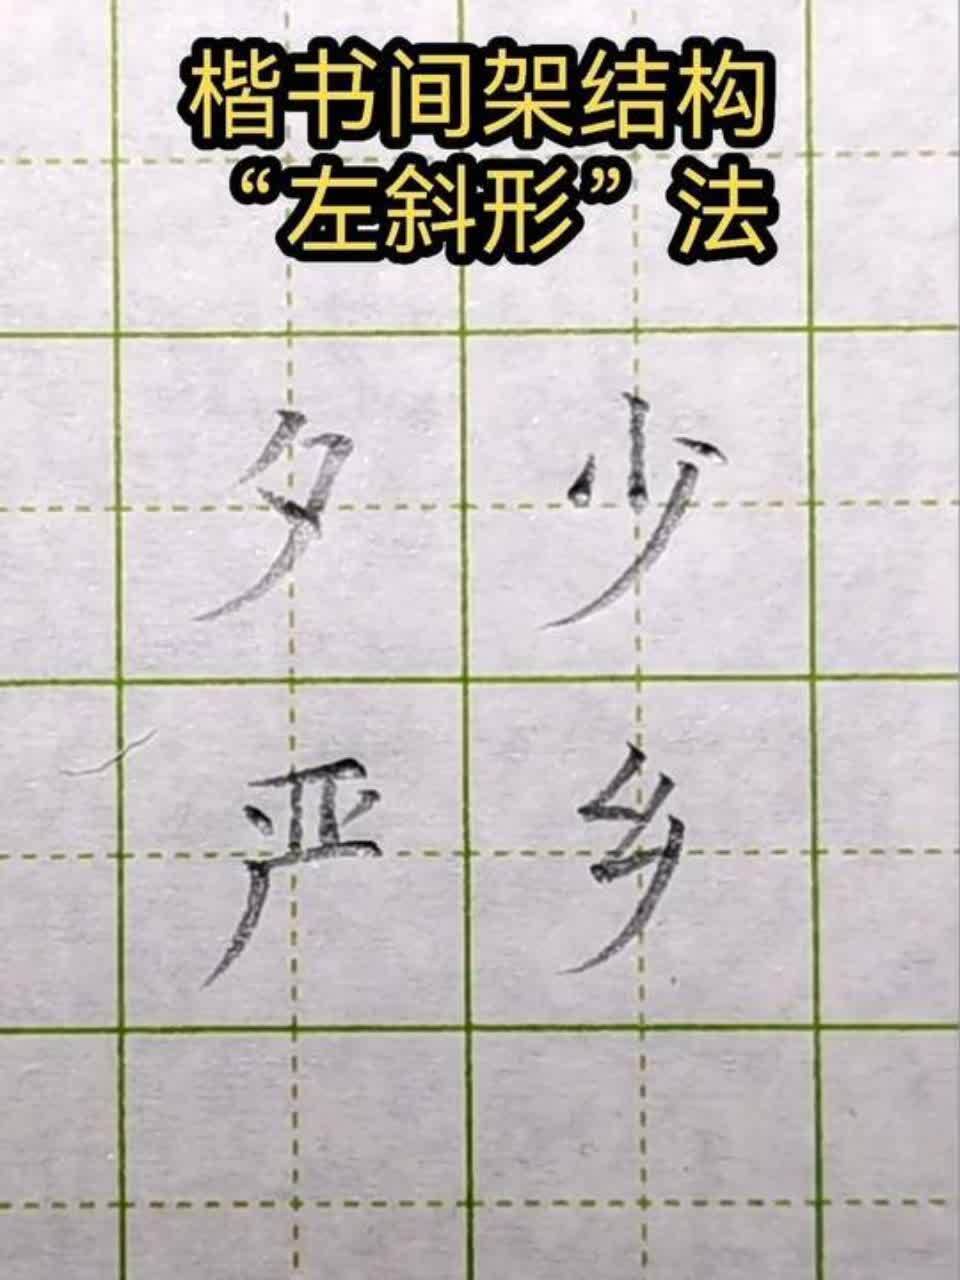 楷书间架结构
“左斜形”法
夕 少
严 乡